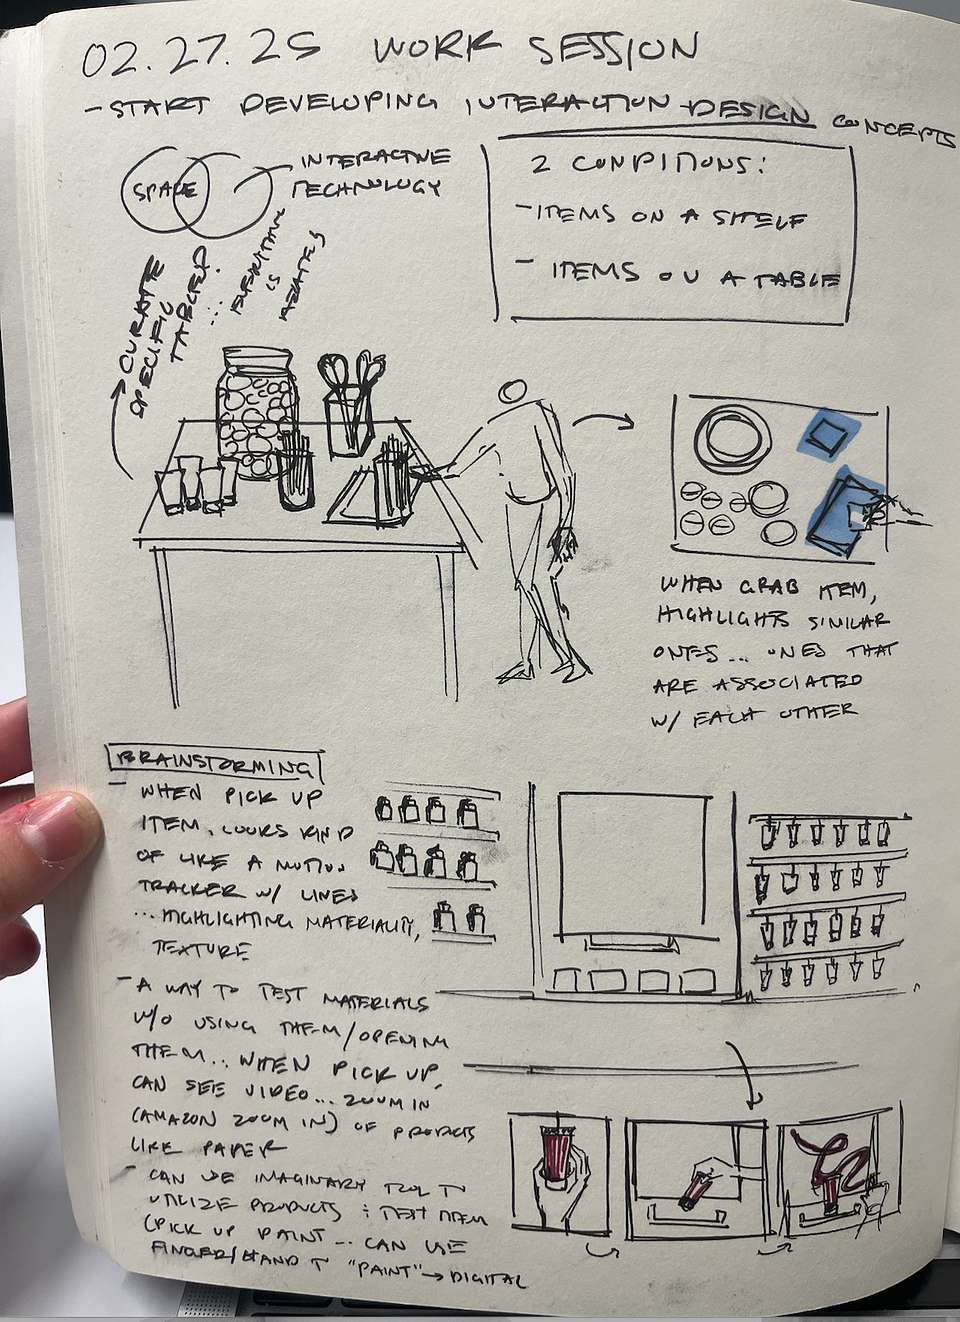 02.27.25 WORK SESSION
- START DEVELOPING INTERACTION DESIGN CONCEPTS
SPACE
INTERACTIVE
TECHNOLOGY
2 CONDITIONS:
- ITEMS ON A SHELF
- ITEMS ON A TABLE
CURATE
SPECIFIC
TABLED
...
IS
WHEN GRAB ITEM,
HIGHLIGHTS SIMILAR
ONES... ONES THAT
ARE ASSOCIATED
W/ EACH OTHER
BRAINSTORMING
- WHEN PICK UP
ITEM, LOOKS KIND
OF LIKE A MOTION
TRACKER W/ LINES
... HIGHLIGHTING MATERIALITY,
TEXTURE
- A WAY TO TEST MATERIALS
W/O USING THEM/OPENING
THEM... WHEN PICK UP,
CAN SEE VIDEO... ZOOM IN
(AMAZON ZOOM IN) OF PRODUCTS
LIKE PAPER
- CAN USE IMAGINARY TOOL TO
UTILIZE PRODUCTS & TEST ITEM
(PICK UP PAINT... CAN USE
FINGER/HAND TO "PAINT" → DIGITAL